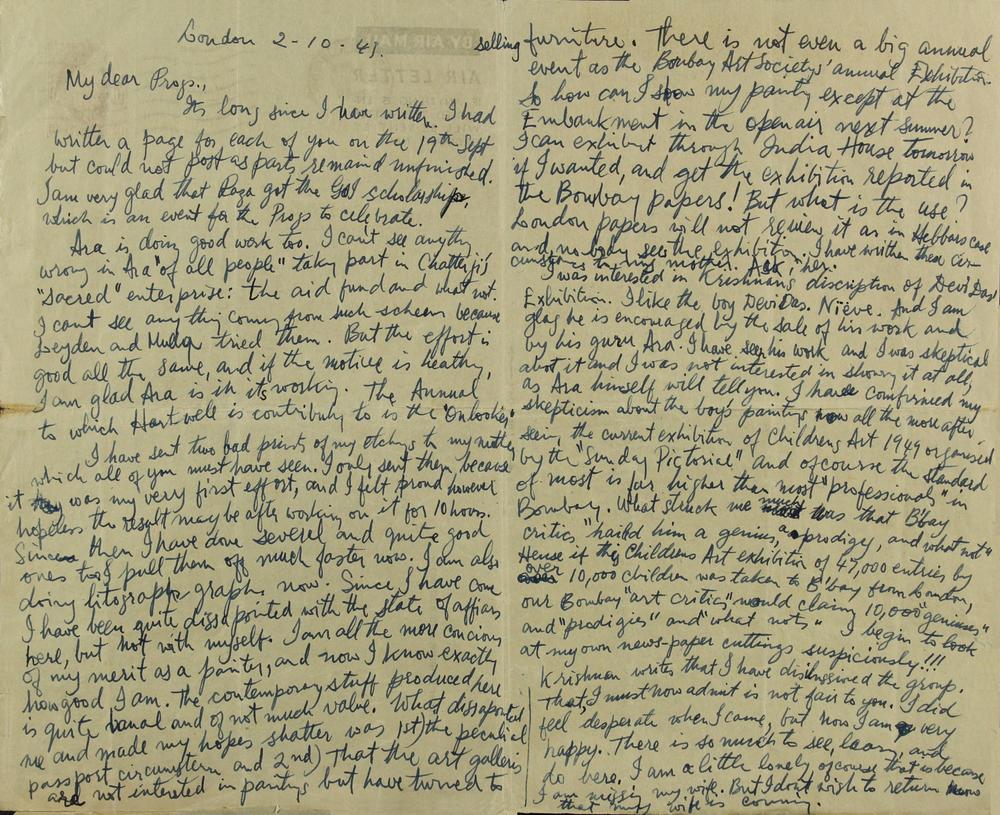 London 2-10-49.
My dear Progs.,
Its long since I have written. I had
written a page for each of you on the 19th Sept
but could not post as parts remaind unfinished.
I am very glad that Raza got the GoI scholarship,
which is an event for the Progs to celebrate.
Ara is doing good work too. I can't see anythg
wrong in Ara "of all people" takig part in Chatterji's
"sacred" enterprise: the aid fund and what not.
I cant see any thig comig from such schem because
Leyden and tried them. But the effort is
good all the same, and if the motive is healthy,
I am glad Ara is in its working. The Annual
to which Hartwell is contributg to is the "Onlooker"
I have sent two bad prints of my etchigs to my mother
which all of you must have seen. I only sent them because
it was my very first effort, and I felt proud however
hopeless the result may be after working on it for 10 hours.
Since then I have done several and quite good
ones too I pull them off much faster now. I am also
doing litograph graphs now. Since I have come
I have been quite dissapointed with the state of affairs
here, but not with myself. I am all the more concious
of my merit as a paintig, and now I know exactly
how good I am. The contemporary stuff produced here
is quite banal and of not much value. What dissapointed
me and made my hopes shatter was 1st) the peculial
passport circumstern and 2nd) That the art galleris
are not interested in paintigs but have turned to
selling furniture. There is not even a big annual
event as the Bombay Art Society's annual Exhibition.
So how can I show my paintig except at the
Embankment in the open air next summer?
I can exhibit through India House tomorrow
if I wanted, and get the exhibition reported in
the Bombay papers! But what is the use?
London papers will not review it as in Hebbars case
and nobody see the exhibition. I have written these cir-
cumstances to my mother. Ask her.
I was interested in Krishnans discription of Devi Das'
Exhibition. I like the boy Devi Das. Nieve. And I am
glag he is encouraged by the sale of his work and
by his guru Ara. I have seen his work and I was skeptical
about it and I was not interested in showing it at all,
as Ara himself will tell you. I have confirmed my
skepticism about the boys paintigs now all the more after
seeing the current exhibition of Childrens Art 1949 organised
by the "Sunday Pictorial" and ofcourse the standard
of most is far higher than most "professionals" in
Bombay. What struck me much was that B'bay
critics "hailed him a genius, a prodigy, and what not"
Hense if the Childrens Art exhibition of 47,000 entries by
over 10,000 children was taken to B'bay from London,
our Bombay "art critics" would claim 10,000 "geniuses"
and "prodigies" and "what nots," I begin to look
at my own news-paper cuttings suspiciously!!!
Krishnan writes that I have disillusioned the group.
That, I must now admit is not fair to you. I did
feel desperate when I came, but now I am very
happy. There is so much to see, learn, and
do here. I am a little lonely ofcourse that is because
I am missig my wife. But I dont wish to return now
that my wife is coming.